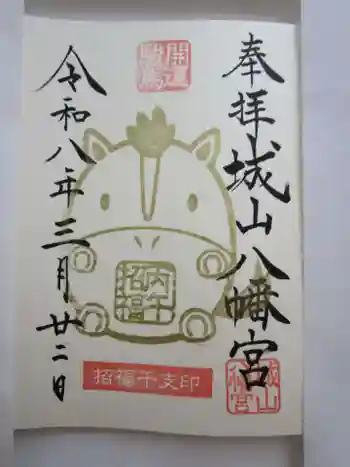 奉拝
城山八幡宮
開運
丙午
招福
招福干支印
令和八年三月廿二日